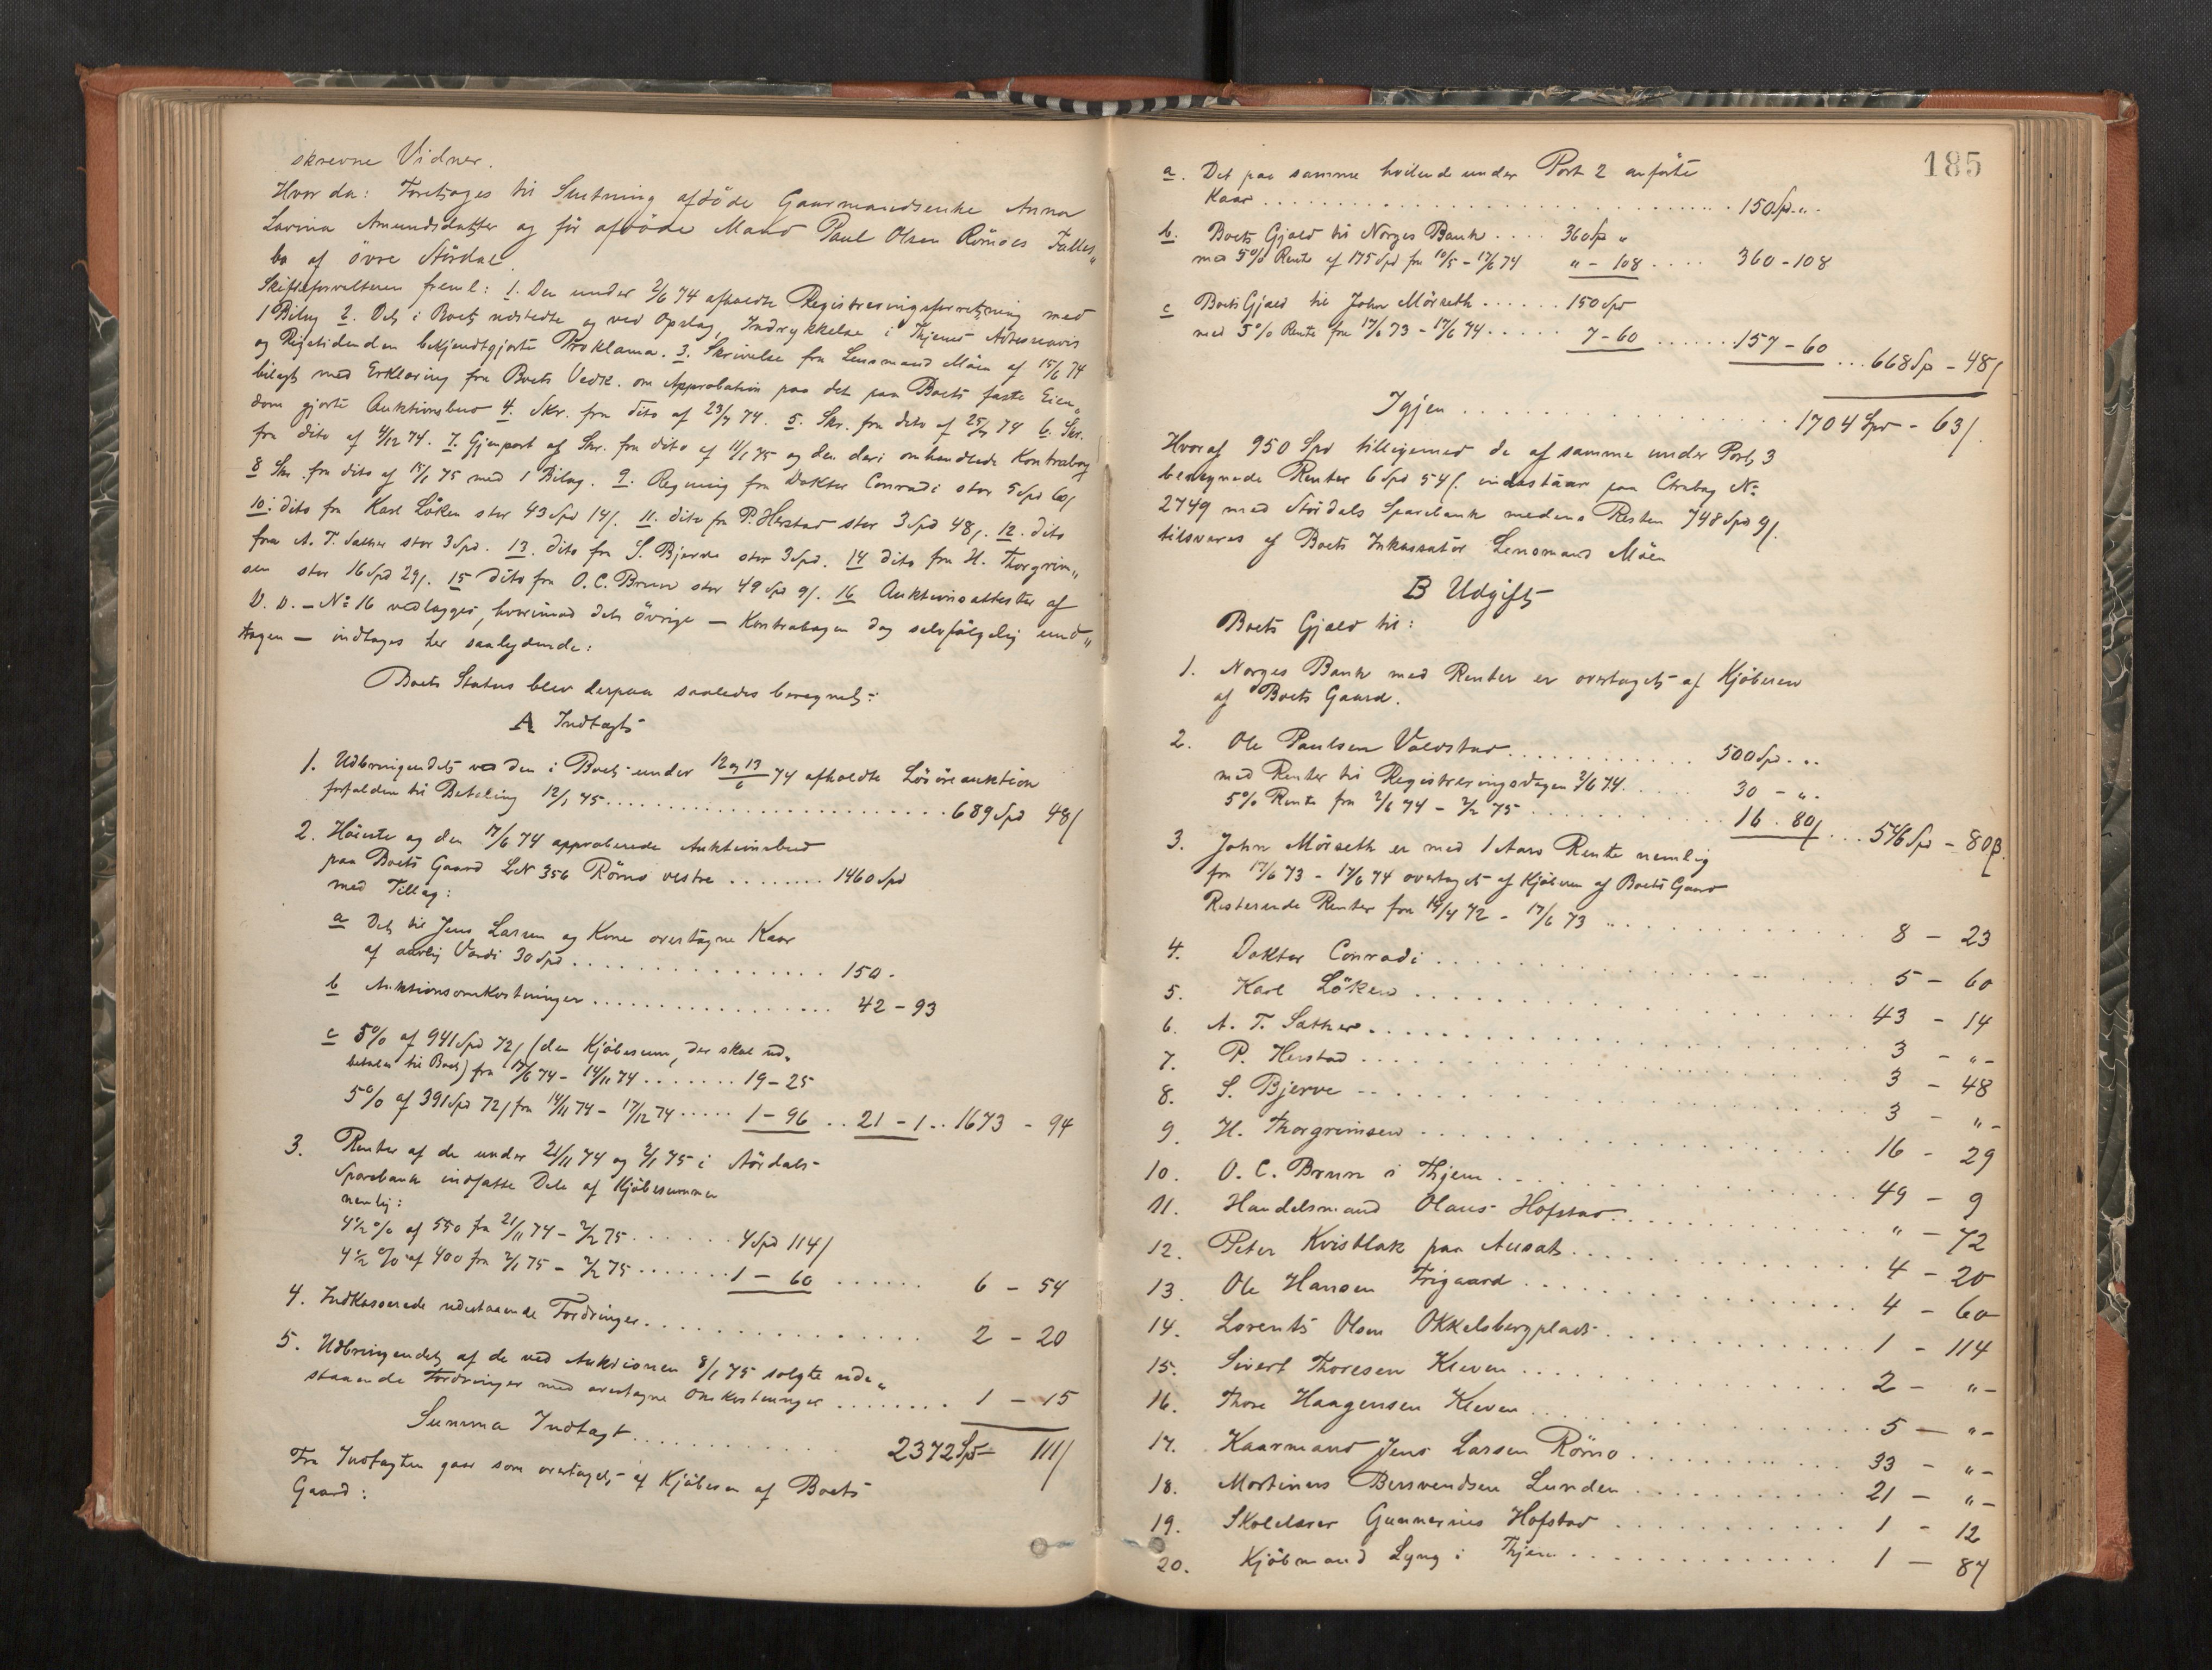 skrevne Vidner.
Hvor da: Foretoges til Slutning afdöde Gaarmandsenke Anna
Lovina Amundsdatter og för afdöde Mand Paul Olsen Römoes Fælles„
bo af övre Stördal.
Skifteforvalteren freml: 1. Den under 2/6 74 afholdte Registreringsforretning med
1 Bilag 2. Det i Boet udstedte og ved Opslag, Indrykkelse i Thjems Adresseavis
og Rigstidenden bekjendtgjorte Proklama. 3. Skrivelse fra Lensmand Möen af 15/6 74
bilagt med Erklæring fra Boets Vedk. om Approbation paa det paa Boets faste Eien„
dom gjorte Auktionsbud 4. Skr. fra dito af 23/7 74. 5. Skr. fra dito af 25/7 74 6. Skr.
fra dito af 4/12 74. 7. Gjenpart af Skr. fra dito af 11/1 75 og den deri omhandlede Kontrabog
8 Skr. fra dito af 18/1 75 med 1 Bilag. 9. Regning fra Doktor Conradi stor 5 Spd 60/
10: dito fra Karl Löken stor 43 Spd 14/. 11. dito fra P. Herstad stor 3 Spd 48/. 12. dito
fra A. T. Sæther stor 3 Spd. 13. dito fra S. Bjerve stor 3 Spd. 14 dito fra H. Thorgrim„
sen stor 16 Spd 29/. 15 dito fra O. C. Bruun stor 49 Spd 9/. 16 Auktionsattester af
D. D. – No 16 vedlægges, hvorimod det övrige — Kontrabogen dog selvfölgelig und„
tagen — indtages her saalydende:
Boets Status blev derpaa saaledes beregnet:
A Indtægt
1. Udbringendet ved den i Boet under 12 og 13/6 74 afholdte Lösöreauktion
forfalden til Betaling 12/1 75 . . . . 689 Spd 48/
2. Höieste og den 17/6 74 approberede Auktionsbud
paa Boets Gaard LN 356 Römo vestre . . . . 1460 Spd
med Tillæg:
a Det til Jens Larsen og Kone overtagne Kaar
af aarlig Værdi 30 Spd . . . . 150.
b Auktionsomkostninger . . . . 42 – 93
c 5% af 941 Spd 72/ (den Kjöbesum, der skal ud„
betales til Boet) fra 17/6 74 – 14/11 74 . . . . 19 – 25
5% af 391 Spd 72/ fra 14/11 74 – 17/12 74 . . . . 1 – 96 . . 21 – 1 . . 1673 – 94
3. Renter af de under 21/11 74 og 2/1 75 i Stördals
Sparebank indsatte Dele af Kjöbesummen
nemlig:
4½ % af 550 fra 21/11 74 – 2/2 75 . . . . 4 Spd 114/
4½ % af 400 fra 2/1 75 – 2/2 75 . . . . 1 – 60 . . . . 6 – 54
4. Indkasserede udestaaende Fordringer . . . . 2 – 20
5. Udbringendet af de ved Auktionen 8/1 75 solgte ude„
staaende Fordringer med overtagne Omkostninger . . . . 1 – 15
Summa Indtægt . . . . 2372 Spd – 111/
Fra Indtægten gaar som overtaget af Kjöberen af Boets
Gaard:
185
a. Det paa samme hvilende under Post 2 anförte
Kaar . . . . 150 Spd „.
b. Boets Gjæld til Norges Bank . . . . 360 Sp „
med 5% Rente af 175 Spd fra 10/5 – 17/6 74 „ – 108 . . . . 360 – 108
c Boets Gjæld til John Mörseth . . . . 150 Spd
med 5% Rente fra 17/6 73 – 17/6 74 . . . . 7 – 60 . . . . 157 – 60 . . . 668 Sp – 48/
Igjen . . . . 1704 Spd – 63/.
Hvoraf 950 Spd tilligemed de af samme under Post 3
beregnede Renter 6 Spd 54/. indestaar paa Ctrabog No
2749 med Stördals Sparebank medens Resten 748 Spd 9/.
tilsvares af Boets Inkassator Lensmand Möen
B Udgift
Boets Gjæld til:
1. Norges Bank med Renter er overtaget af Kjöberen
af Boets Gaard.
2. Ole Paulsen Voldstad . . . . 500 Spd . . .
med Renter til Registreringsdagen 2/6 74 . . . . 30 – „.
5% Rente fra 2/6 74 – 2/2 75 . . . . 16 . 80/ . . . 546 Spd – 80 β.
3. John Mörseth er med 1 Aars Rente nemlig
fra 17/6 73 – 17/6 74 overtaget af Kjöberen af Boets Gaard
Resterende Renter fra 14/4 72 – 17/6 73 . . . . 8 – 23
4. Doktor Conradi . . . . 5 – 60
5. Karl Löken . . . . 43 – 14
6. A. T. Sæther . . . . 3 – „ –
7. P. Herstad . . . . 3 – 48
8. S. Bjerve . . . . 3 – „ –
9. H. Thorgrimsen . . . . 16 – 29
10. O. C. Bruun i Thjem . . . . 49 – 9
11. Handelsmand Olaus Hofstad . . . . „ – 72
12. Peter Kvistlak paa Ausat . . . . 4 – 20
13. Ole Hansen Frigaard . . . . 4 – 60
14. Lorents Olsen Okkelsbergplads . . . . 1 – 114
15. Sivert Thoresen Kleven . . . . 2 – „ –
16. Thore Haagensen Kleven . . . . 5 – „ –
17. Kaarmand Jens Larsen Römo . . . . 33 – „ –
18. Mortinus Bersvendsen Lunden . . . . 21 – „ –
19. Skolelærer Gunnerius Hofstad . . . . 1 – 12
20. Kjöbmand Lyng i Thjem . . . . 1 – 87